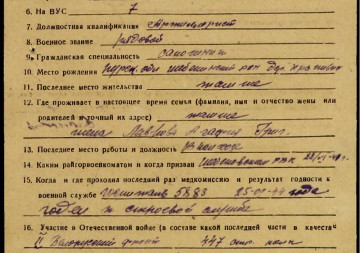 6. На ВУС 7
7. Должностная квалификация Артиллерист
8. Военное звание рядовой
9. Гражданская специальность сапожник
10. Место рождения обл. р-н дер.
11. Последнее место жительства там же
12. Где проживает в настоящее время семья (фамилия, имя и отчество жены или
родителей и точный их адрес) там же
жена Лаврова Агафия Григ.
13. Последнее место работы и должность колхоз
14. Каким райгорвоенкоматом и когда призван РВК
15. Когда и где проходил последн. медкомиссию и результат годности к
военной службе 5883 25-01-44 года
годен к строевой службе
16. Участие в Отечественной войне (в составе какой последней части в качестве
II Белорусский фронт 447 стр. полк